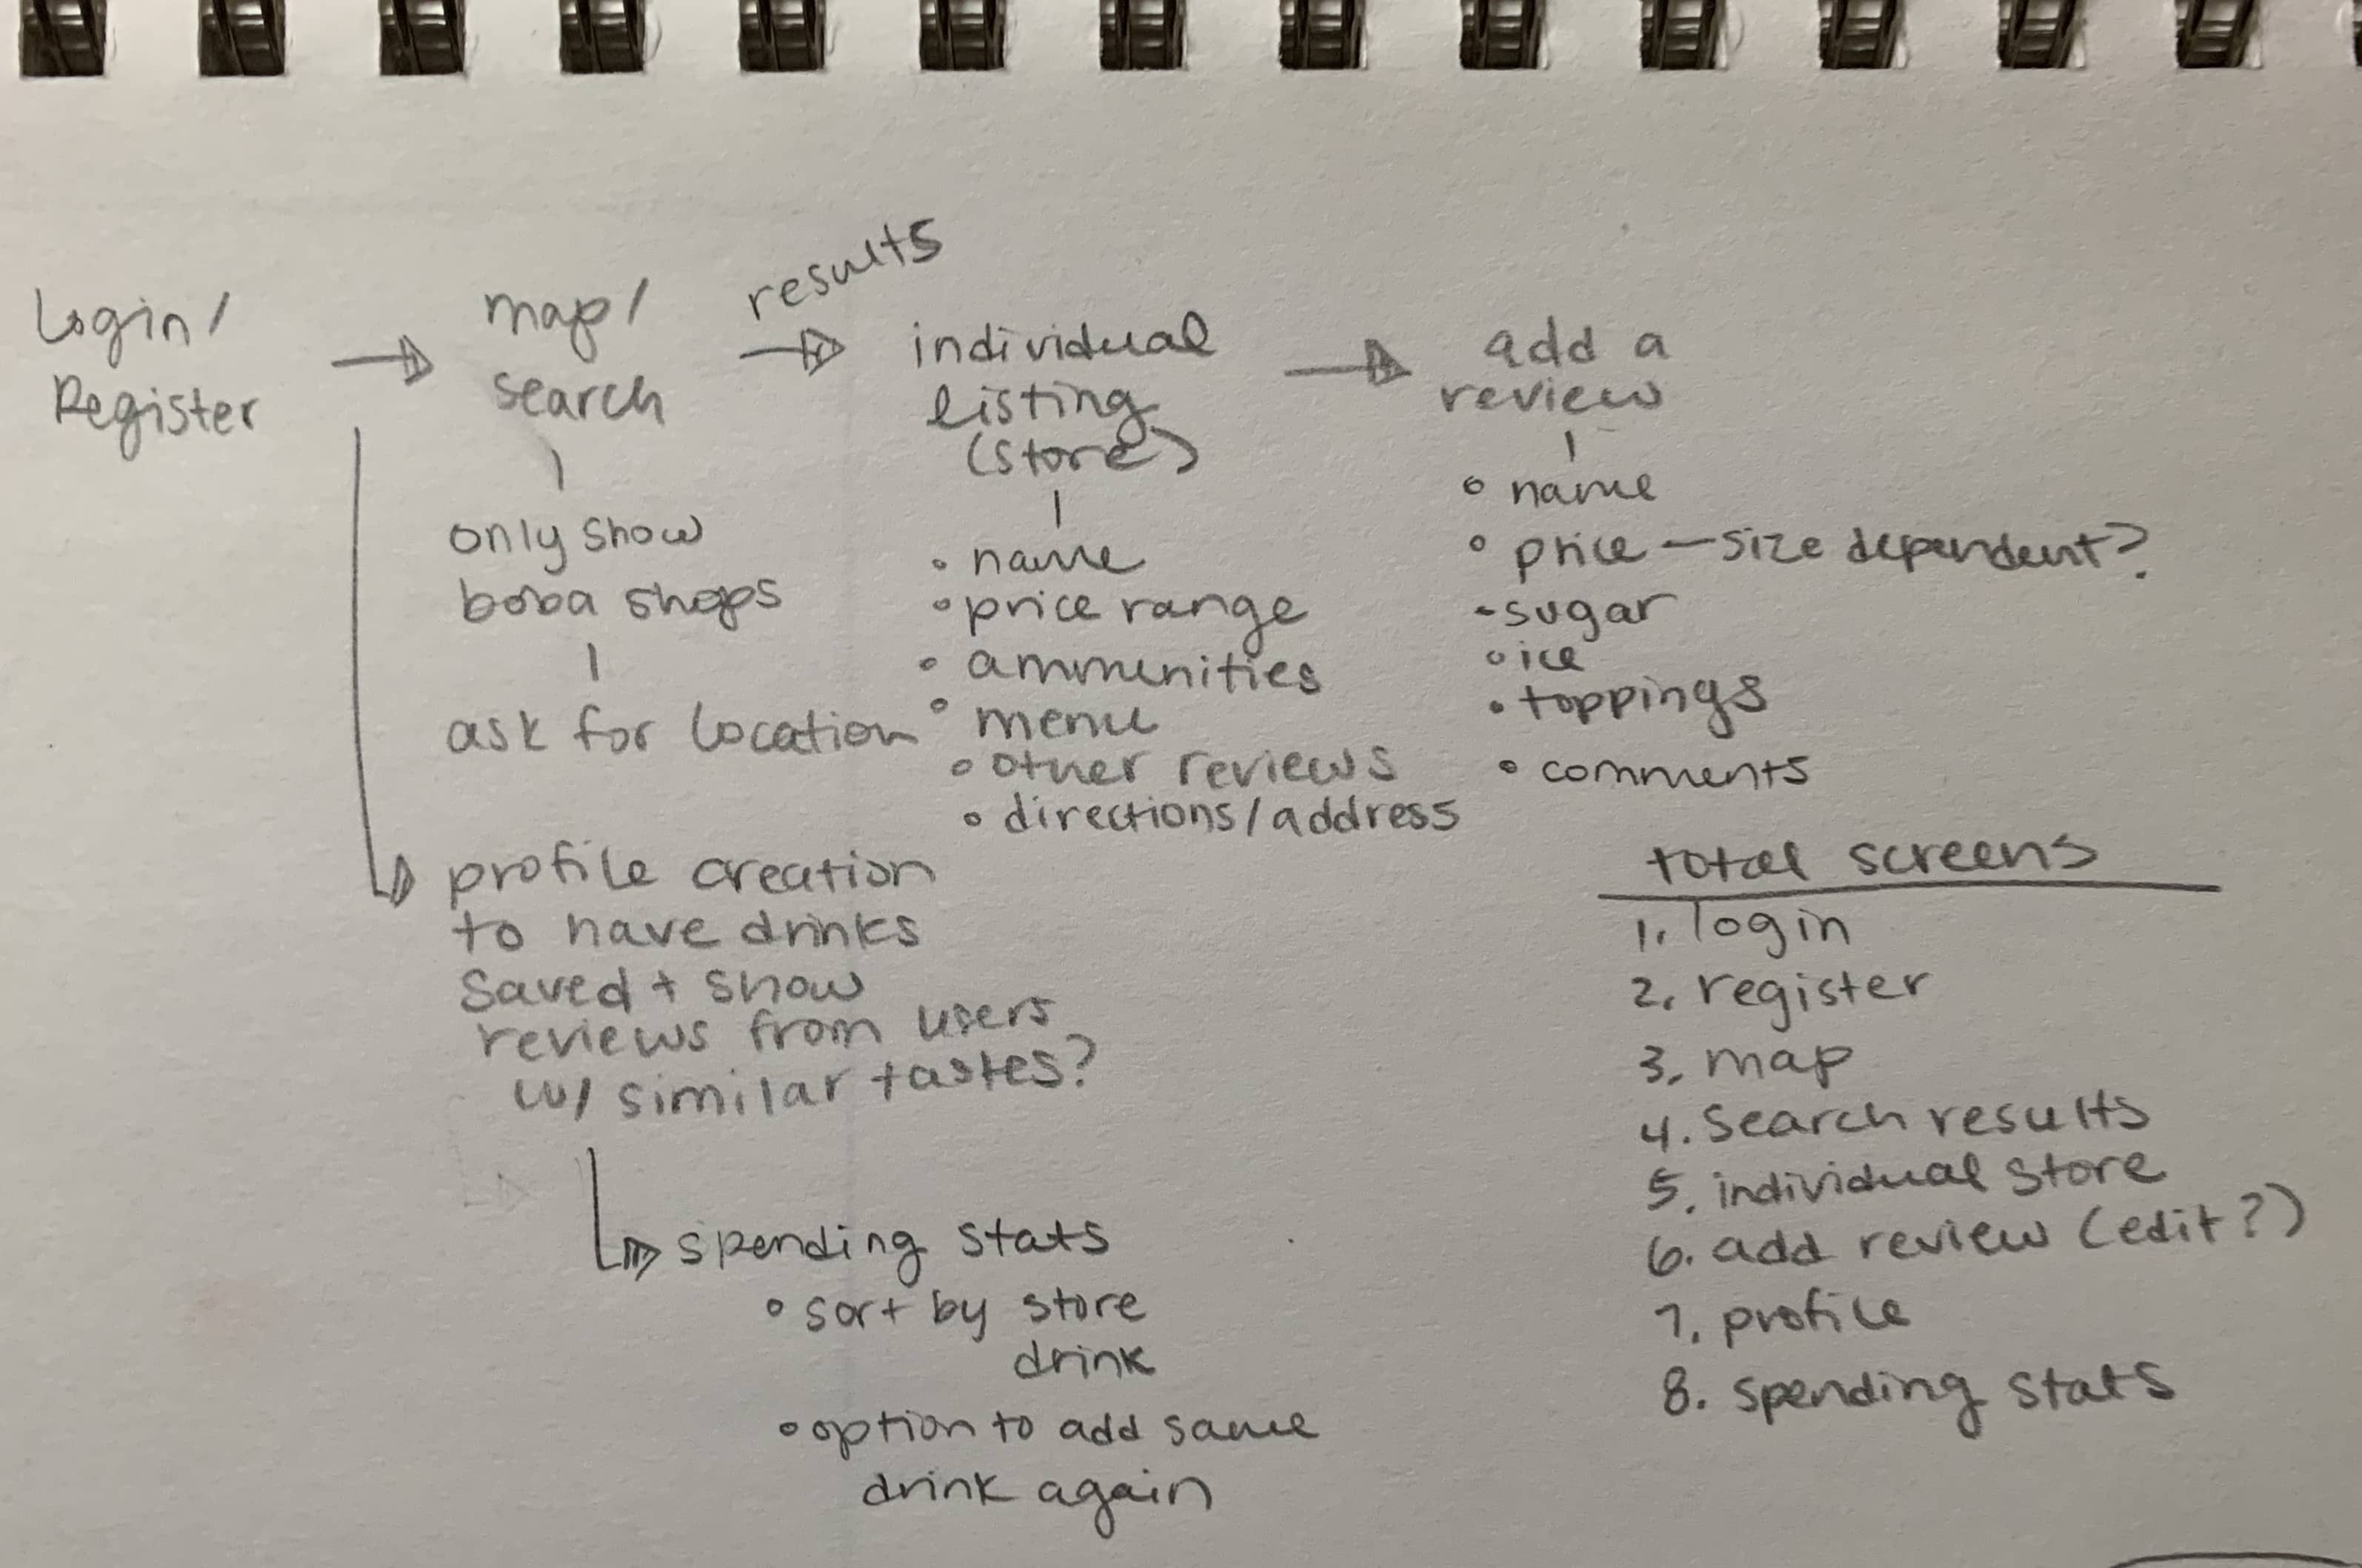 Login/
Register
map/
search
only show
boba shops
ask for location
results
individual
listing
(store)
• name
• price range
• ammenities
• menu
• other reviews
• directions/address
add a
review
• name
• price — size dependent?
- sugar
• ice
• toppings
• comments
profile creation
to have drinks
saved + show
reviews from users
w/ similar tastes?
spending stats
• sort by store
drink
• option to add same
drink again
total screens
1. login
2. register
3. map
4. search results
5. individual store
6. add review (edit?)
7. profile
8. spending stats